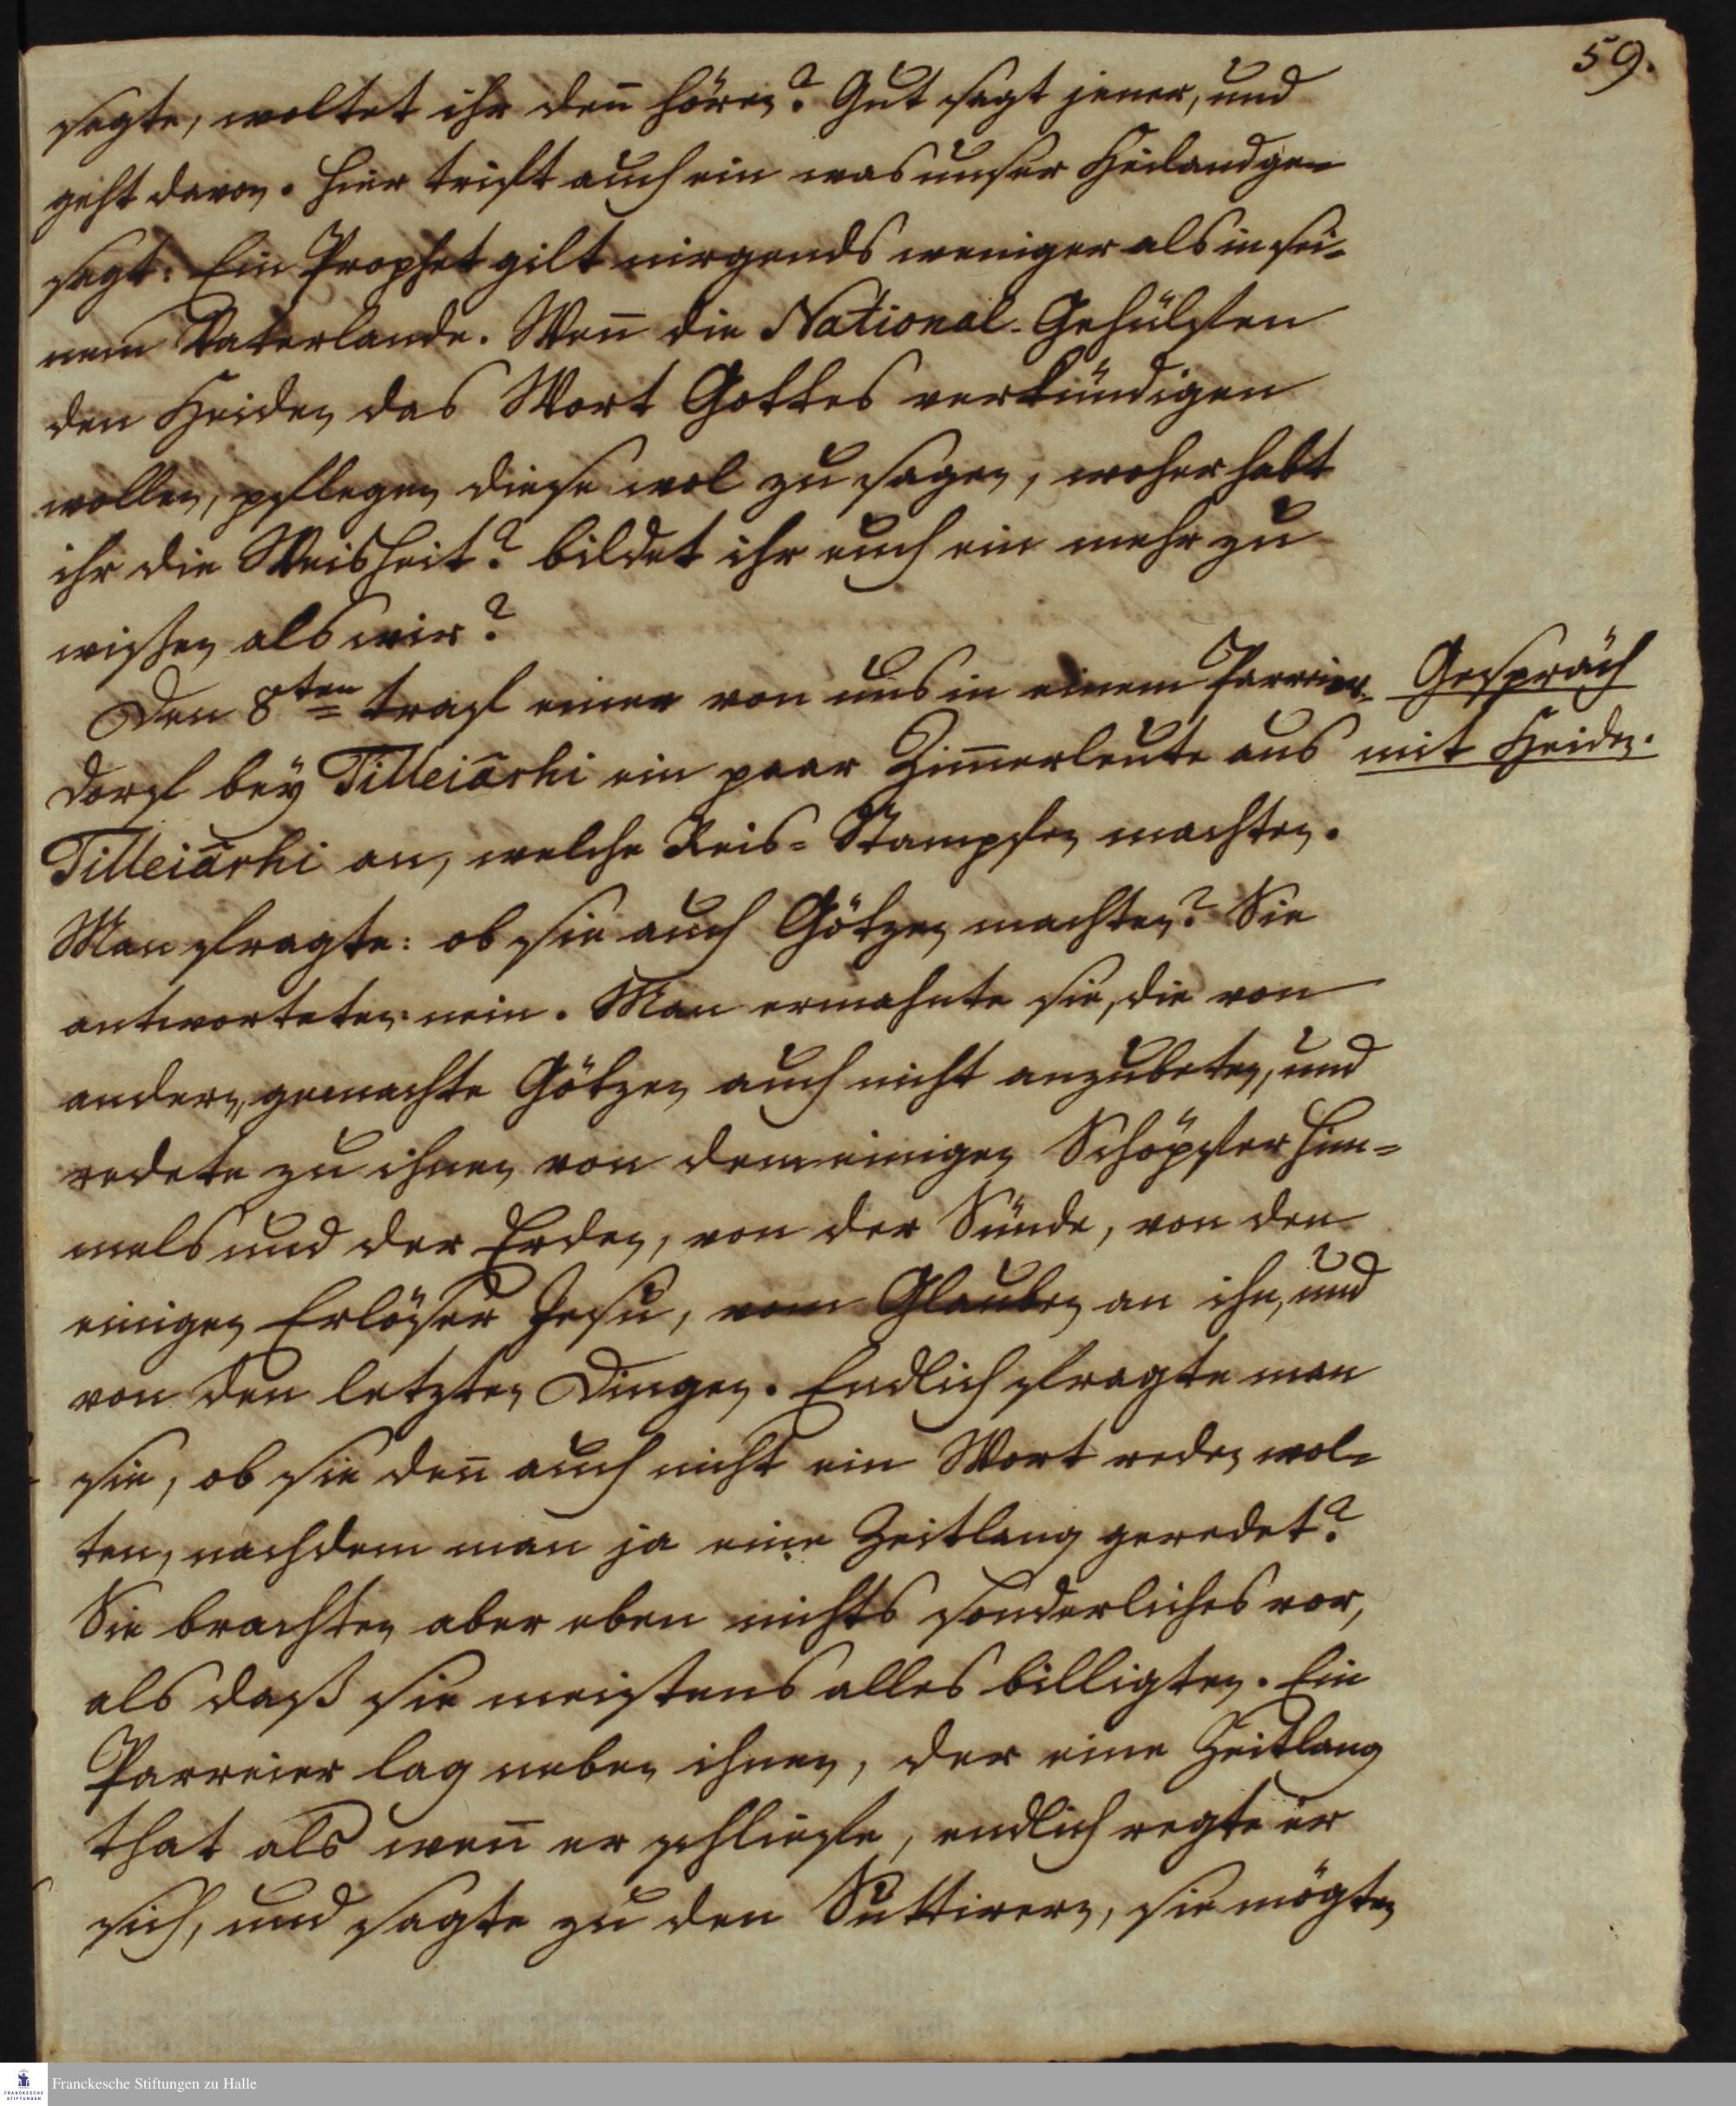 59.
sagte, woltet ihr deñ hören? Gut sagt jener, und
geht davon. Hier trift auch ein was unser Heiland ge=
sagt: Ein Prophet gilt nirgends weniger als in sei=
nem Vaterlande. Weñ die National-Gehülfen
den Heiden das Wort Gottes verkündigen
wollen, pflegen diese wol zu sagen, woher habt
ihr die Weisheit? bildet ihr euch ein mehr zu
wissen als wir?
Den 8ten traf einer von uns in einem Parreier=
Gespräch
mit Heiden.
dorf bey Tilleiārhi ein paar Zim̃erleute aus
Tilleiārhi an, welche Reis=Stampfen machten.
Man fragte: ob sie auch Götzen machten? Sie
antworteten: nein. Man ermahnte sie, die von
andern gemachte Götzen auch nicht anzubeten, und
redete zu ihnen von dem einigen Schöpfer Him=
mels und der Erden, von der Sünde, von den
einigen Erlöser Jesu, vom Glauben an ihn, und
von den letzten Dingen. Endlich fragte man
sie, ob sie deñ auch nicht ein Wort reden wol=
ten, nachdem man ja eine Zeitlang geredet?
Sie brachten aber eben nichts sonderliches vor,
als daß sie meistens alles billigten. Ein
Parreier lag neben ihnen, der eine Zeitlang
that als weñ er schliefe, endlich regte er
sich, und sagte zu den Suttirern, sie mögten
Franckesche Stiftungen zu Halle
FRANCKESCHE
STIFTUNGEN